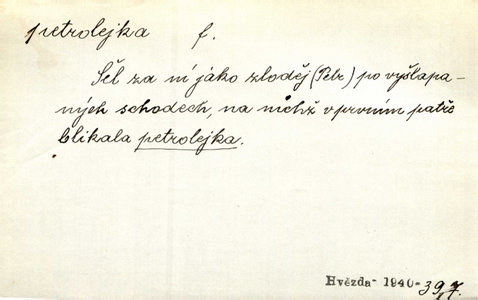 petrolejka f.
Šel za ní jako zloděj (Petr) po vyšlapa-
ných schodech, na nichž v prvním patře
blikala petrolejka.
Hvězda- 1940-39,7.